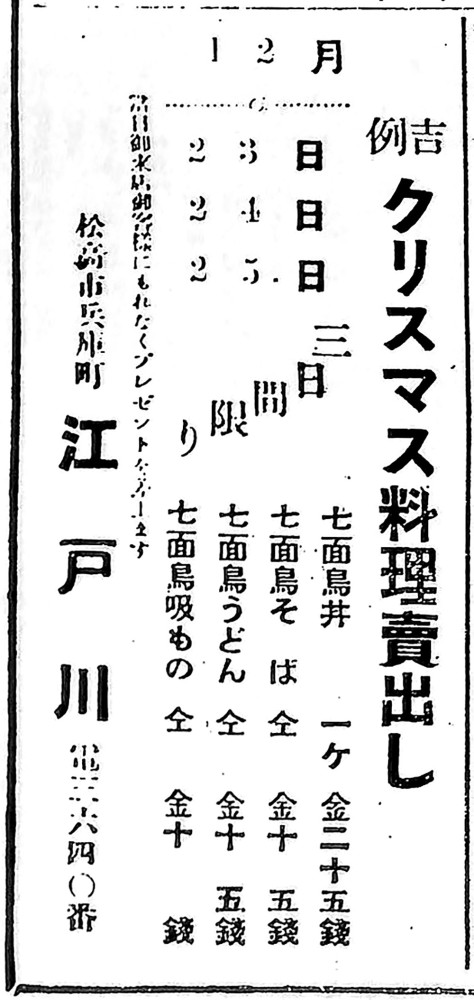 吉例
クリスマス料理賣出し
12月
の
23日
24日
25日
三日間限り
七面鳥井 一ケ 金二十五錢
七面鳥そば 仝 金十五錢
七面鳥うどん 仝 金十五錢
七面鳥吸もの 仝 金十錢
當日御来店御客様にもれなくプレゼントを
松高市兵庫町
江戸川
六四〇番